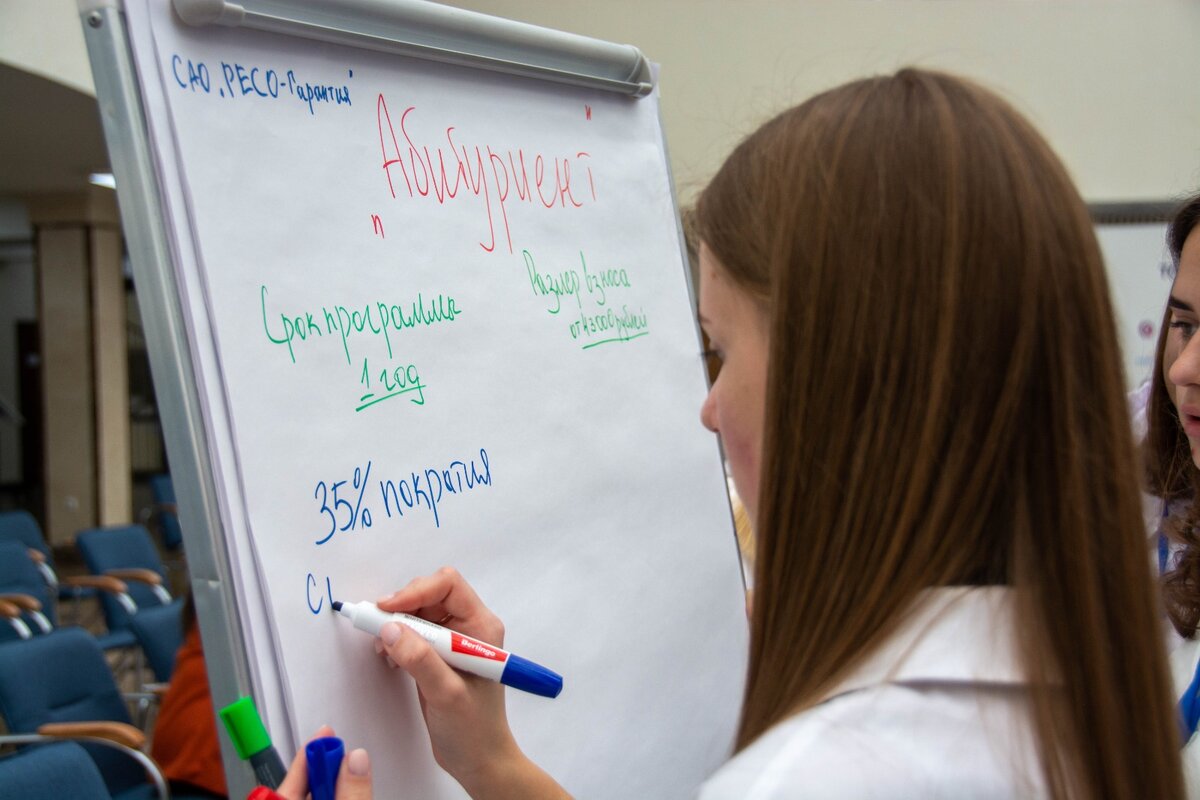 САО "РЕСО-Гарантия"
"Абибуриент"
Срок программы
1 год
Размер взноса
от 43000 рублей
35% пократия
Berlingo